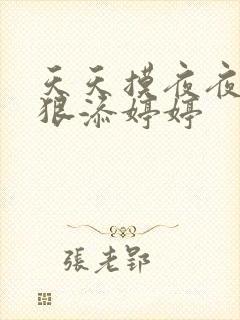 天天摸夜夜
狠添婷婷
張老郢